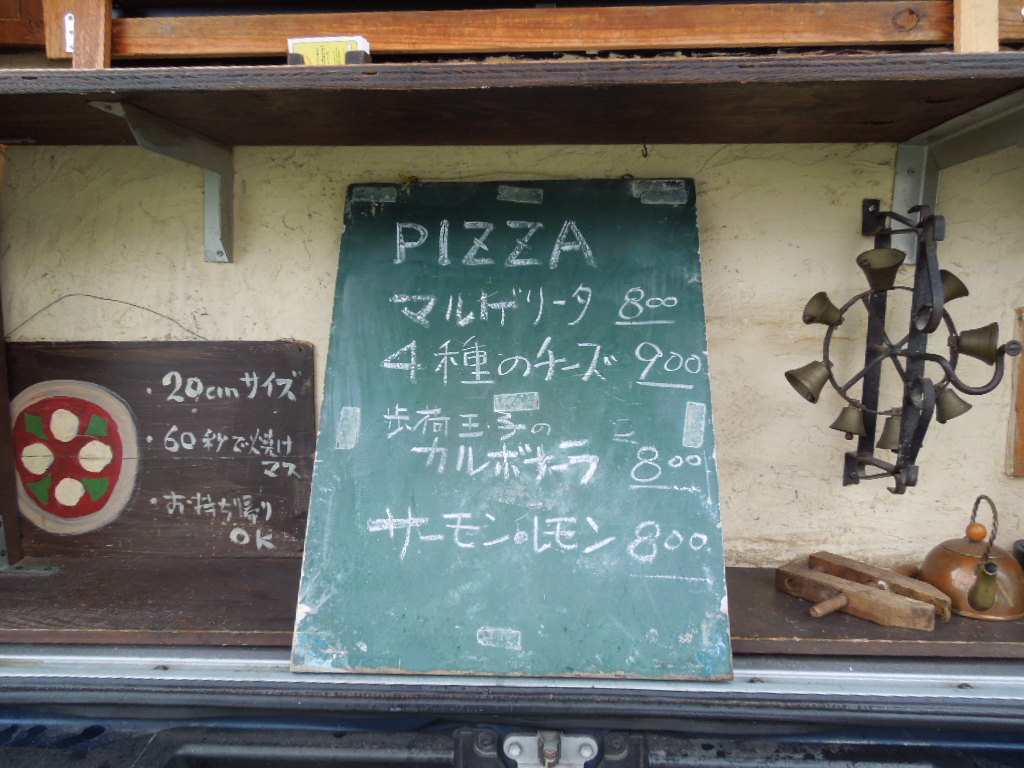 PIZZA
マルゲリータ 800
4種のチーズ 900
歩荷玉子の
カルボナーラ 800
サーモン・レモン 800
・20cmサイズ
・60秒で焼け
マス
・お持ち帰り
OK